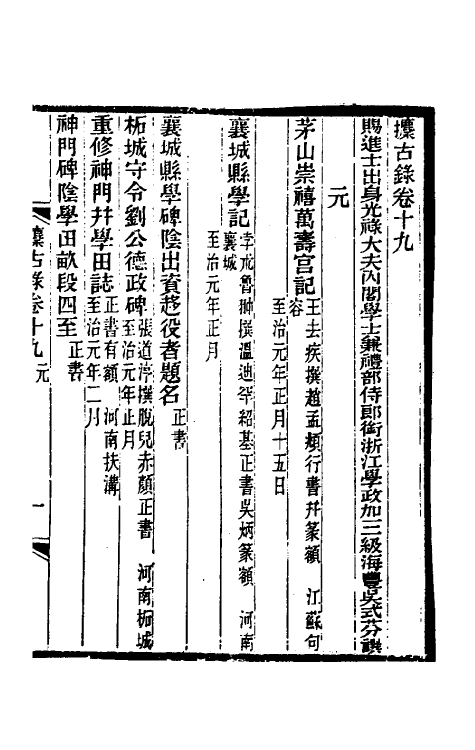 攟古錄卷十九
賜進士出身光祿大夫內閣學士兼禮部侍郎銜浙江學政加三級海豐吳式芬譔
元
茅山崇禧萬壽宮記
王去疾撰趙孟頫行書幷篆額　江蘇句
容　　至治元年正月十五日
襄城縣學記
李朮魯翀撰溫迪罕紹基正書吳炳篆額　河南
襄城　至治元年正月
襄城縣學碑陰出資趍役者題名
正書
柘城守令劉公德政碑
張道淳撰脫兒赤顏正書　河南柘城
至治元年正月
重修神門幷學田誌
正書有額　河南扶溝
至治元年二月
神門碑陰學田畝段四至
正書
攟古錄卷十九　元　一